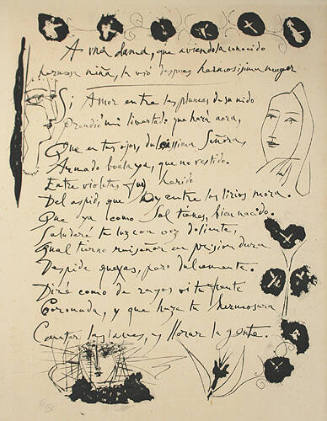 A una dama, que aviendola conocido
hermosa niña, la vió despues hermosisima muger
Si Amor entre las plumas de su nido
Prendió mi libertad que hara aora,
Que en tus ojos, dulcisima Señora,
Armado buela, ya que no vestido.
Entre violetas fui herido
Del aspid, que oy entre los lirios mora.
Que ya como Sol tienes, bien nacido.
Saludaré tu luz con voz doliente,
Qual tierno ruiseñor en prision dura
Despide quexas, pero dulcemente.
Diré como de rayos vi tu frente
Coronada, y que haze tu hermosura
Cantar las aves, y llorar la gente.